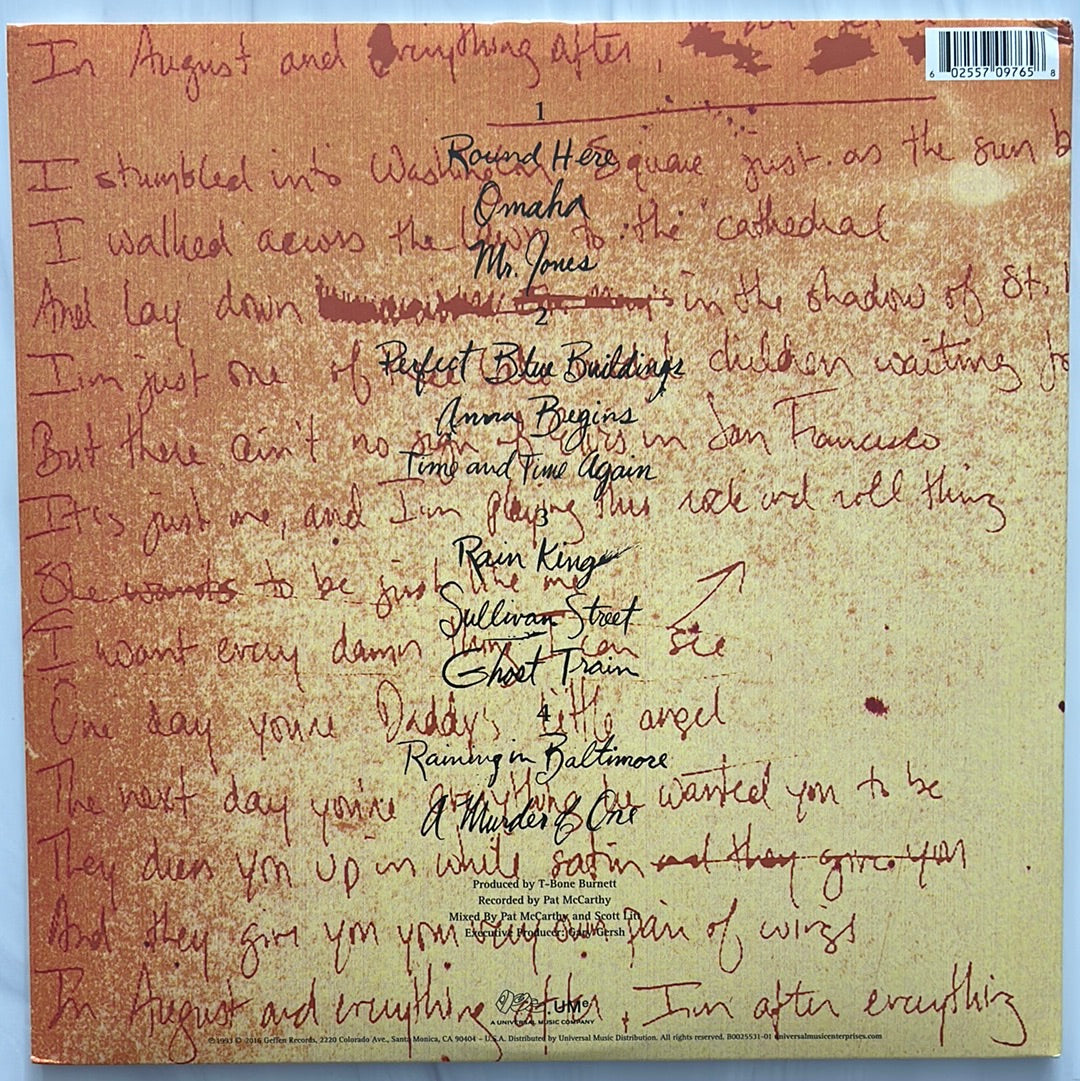 In August and Everything after,
6 02557 09765 8
1
Round Here
I stumbled into Washington Square just as the sun b
Omaha
I walked across the lawn to the cathedral
Mr. Jones
And lay down in the shadow of St.
2
Perfect Blue Buildings
I'm just one of children waiting
Anna Begins
But there ain't no sign of in San Francisco
Time and Time Again
It's just me, and I'm playing this rock and roll thing
3
Rain King
She wants to be just like me
Sullivan Street
I want every damn thing I can see
Ghost Train
One day you're Daddy's little angel
4
Raining in Baltimore
The next day you're everything he wanted you to be
A Murder of One
They dress you up in white satin and they give you
Produced by T-Bone Burnett
Recorded by Pat McCarthy
Mixed By Pat McCarthy and Scott Litt
Executive Producer: Gary Gersh
And they give you your very own pair of wings
In August and everything after, I'm after everything
UMe
A UNIVERSAL MUSIC COMPANY
℗1993 © 2016 Geffen Records, 2220 Colorado Ave., Santa Monica, CA 90404 – U.S.A. Distributed by Universal Music Distribution. All rights reserved. B0025531-01 universalmusicenterprises.com